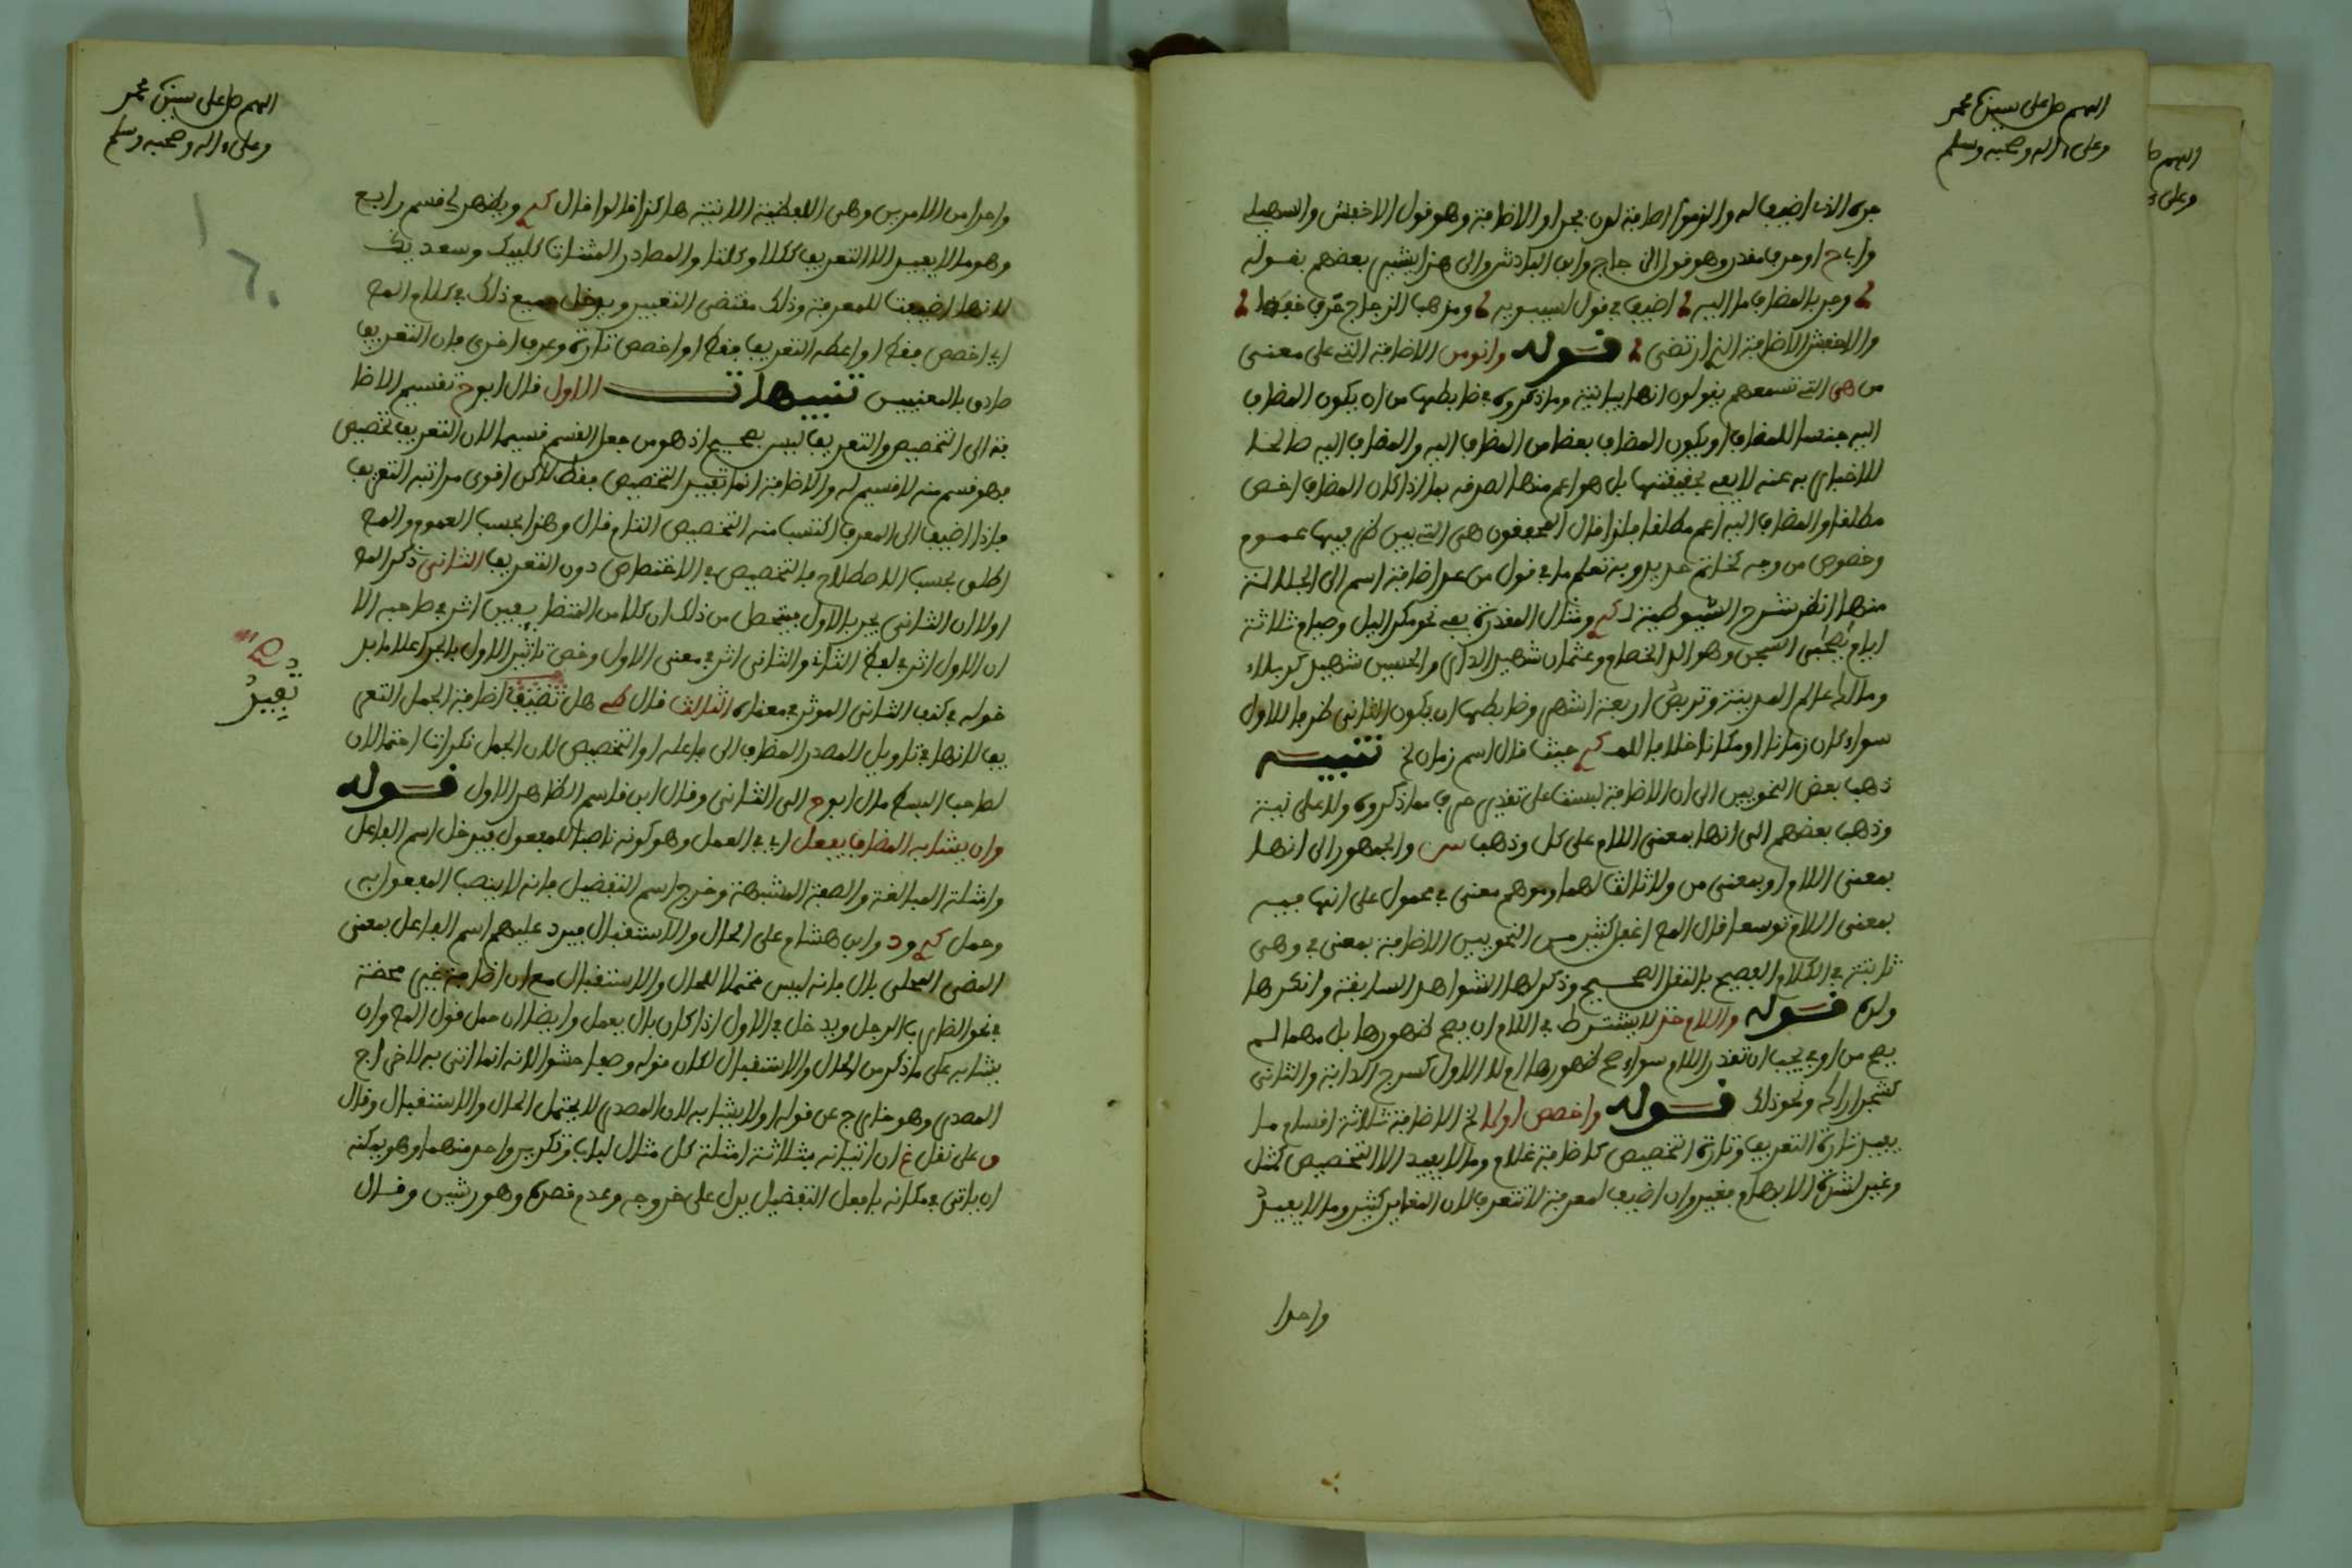 اللهم صل على سيدنا محمد
وعلى ءاله وصحبه وسلم
جره الذي اضيف اليه والزموا اضافة لدن بجر او الاضافة وهو قول الاخفش والسهيلي
وابا ح او حرف مقدر وهو قول الزجاج وابن الباذش والى هذا يشير بعضهم بقوله
وجر بالمضاف ما اليه اضيف في قول لسيبويه ومذهب الزجاج حرف خفضا
والاخفش الاضافة التي ارتضى قوله وانو من الاضافة التي على معنى
من هي التي تسمعهم يقولون انها بيانية وما ذكروه في ضابطها من ان يكون المضاف
اليه جنسا للمضاف او يكون المضاف بعضا من المضاف اليه والمضاف اليه صالحا
للاخبار به عنه لا يفي بحقيقتها بل هو اعم منها لصدقه بما اذا كان المضاف اخص
مطلقا والمضاف اليه اعم مطلقا فلذا قال المحققون هي التي بين طرفيها عموم
وخصوص من وجه كخاتم حديد وبه تعلم ما في قول من عد اضافة اسم الى الجلالة
منها انظر شرح السيوطية لـ ومثال المقدرة بفي نحو مكر الليل وصيام ثلاثة
ايام يصحبي السجن وهو الد الخصام وعثمان شهيد الدار والحسين شهيد كربلاء
ومالك عالم المدينة وتربص اربعة اشهر وضابطها ان يكون الثاني ظرفا للاول
سواء كان زمانا او مكانا خلافا للمـ حيث قال اسم زمان الخ تنبيه
ذهب بعض النحويين الى ان الاضافة ليست على تقدير حرف مما ذكروه ولا على نيته
وذهب بعضهم الى انها بمعنى اللام على كل وذهب س والجمهور الى انها
بمعنى اللام او بمعنى من ولا ثالث لهما وموهم معنى في محمول على انها فيه
بمعنى اللام توسعا قال المص اغفل كثير من النحويين الاضافة بمعنى في وهي
ثابتة في الكلام الفصيح بالنقل الصحيح وذكر لها الشواهد السابقة وانكرها
ولده قوله واللام خذ لا يشترط في اللام ان يصح ظهورها بل مهما لم
يصح من او في يجب ان تقدر اللام سواء صح ظهورها ام لا الاول كسرج الدابة والثاني
كشجر اراك ونحو ذلك قوله واخصص اولا الخ الاضافة ثلاثة اقسام ما
يفيد تارة التعريف وتارة التخصيص كاضافة غلام وما لا يفيد الا التخصيص كمثل
وغير لشدة الابهام بغير وان اضيف لمعرفة لا تتعرف لان المغاير كثير وما لا يفيد
واحدا
اللهم صل على سيدنا محمد
وعلى ءاله وصحبه وسلم
واحدا من الامرين وهي اللفظية الاتية هاكذا قالوا قال ويظهر لي قسم رابع
وهو ما لا يفيد الا التعريف ككلا وكلتا والمصادر المثناة كلبيك وسعديك
لانها اضيفت للمعرفة وذلك مقتضى التغيير ويدخل جميع ذلك في كلام المص
اي اخصص فقط او اعطه التعريف فقط او اخصص تارة وعرف اخرى فان التعريف
صادق بالمعنيين تنبيهات الاول قال ابو ح تقسيم الاضا
فة الى التخصيص والتعريف ليس بصحيح اذ هو من جعل القسم قسيما لان التعريف تخصيص
فهو قسم منه لا قسيم له والاضافة انما تفيد التخصيص فقط لاكن اقوى مراتبه التعريف
فاذا اضيف الى المعرف اكتسب منه التخصيص التام قال وهذا بحسب العموم والمص
اطلق بحسب الاصطلاح فالتخصيص في الاختصاص دون التعريف الثاني ذكر المص
اولا ان الثاني يجر بالاول فيتحصل من ذلك ان كلا من المتضايفين اثر في صاحبه الا
ان الاول اثر في لفظ الثاني والثاني اثر في معنى الاول وخص تاثير الاول بالجر اعلاما بد
خوله في كنف الثاني الموثر في معناه الثالث قال هل تفيد اضافة الجمل التعر
يف لانها في تاويل المصدر المضاف الى فاعله او التخصيص لان الجمل نكرات احتمالان
لصاحب البسيط مال ابو ح الى الثاني وقال ابن قاسم الظاهر الاول قوله
وان يشابه المضاف يفعل اي في العمل وهو كونه ناصبا للمفعول فيدخل اسم الفاعل
وامثلة المبالغة والصفة المشبهة وخرج اسم التفضيل فانه لا ينصب المفعول به
وحمل و د وابن هشام على الحال والاستقبال فيرد عليهم اسم الفاعل بمعنى
المضي المحلى بال فانه ليس محتملا للحال والاستقبال مع ان اضافته غير محضة
في نحو الضارب الرجل ويدخل في الاول اذا كان بال يعمل وايضا ان حمل قول المص وان
يشابه على ما ذكر من الحال والاستقبال لكان قوله وصفا حشوا لانه انما اتى به لاخراج
المصدر وهو خارج عن قوله اولا يشابه لان المصدر لا يحتمل الحال والاستقبال وقال
ق على نقل غ ان اتيانه بثلاثة امثلة كل مثال لباب وتكرير واحد منهما وهو يمكنه
ان ياتي في مكانه بافعل التفضيل يدل على خروجه وعدم قصره وهو رشيق وقال
تفيد